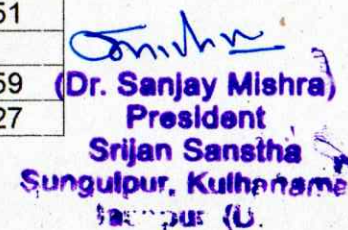 51
59
27
(Dr. Sanjay Mishra)
President
Srijan Sanstha
Sungulpur, Kulhanama